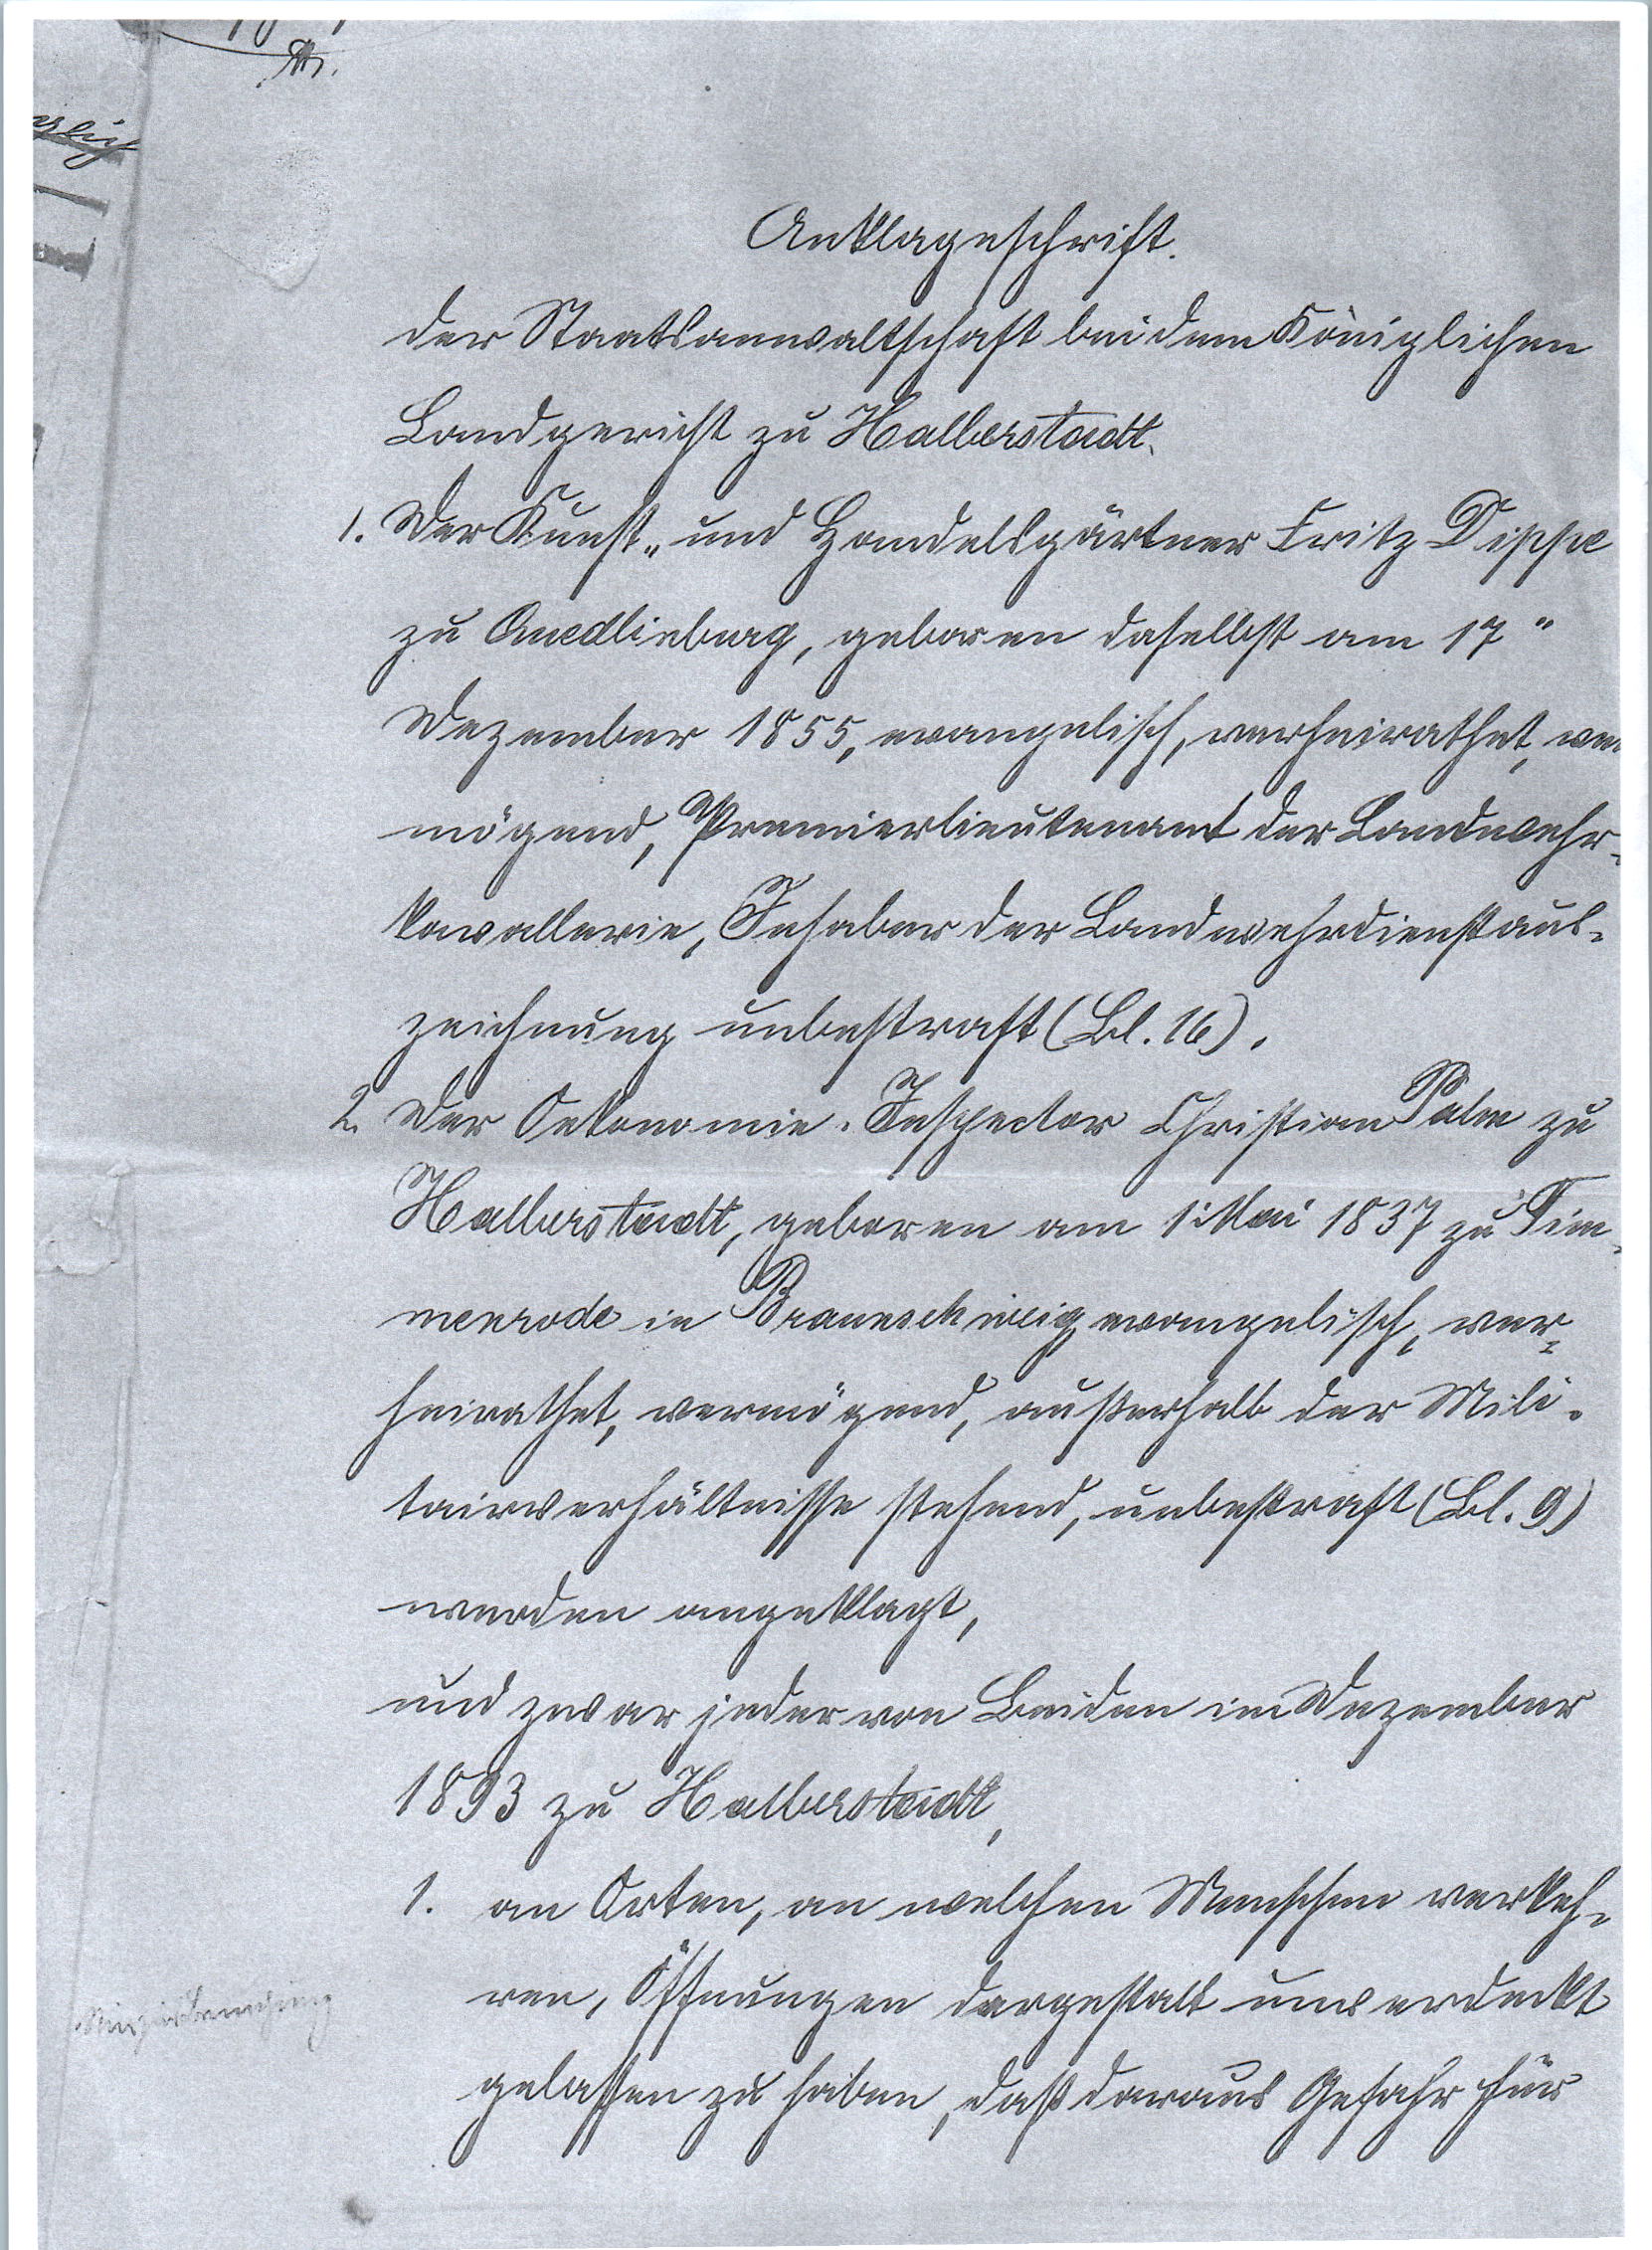 Anklageschrift.
der Staatsanwaltschaft bei dem Königlichen
Landgericht zu Halberstadt.
1. Der Kunst- und Handelsgärtner Fritz Dippe
zu Quedlinburg, geboren daselbst am 17"
Dezember 1855, evangelisch, verheirathet, ver
mögend, Premierlieutenant der Landwehr-
kavallerie, Inhaber der Landwehrdienstaus-
zeichnung unbestraft (Bl. 16).
2. Der Oekonomie-Inspector Christian Palm zu
Halberstadt, geboren am 1. Mai 1837 zu Tim-
menrode in Braunschweig, evangelisch, ver-
heirathet, vermögend, außerhalb der Mili-
tairverhältnisse stehend, unbestraft (Bl. 9)
werden angeklagt,
und zwar jeder von Beiden im Dezember
1893 zu Halberstadt,
1. an Orten, an welchen Menschen verkeh-
ren, Öffnungen dergestalt unverdeckt
gelassen zu haben, daß daraus Gefahr für